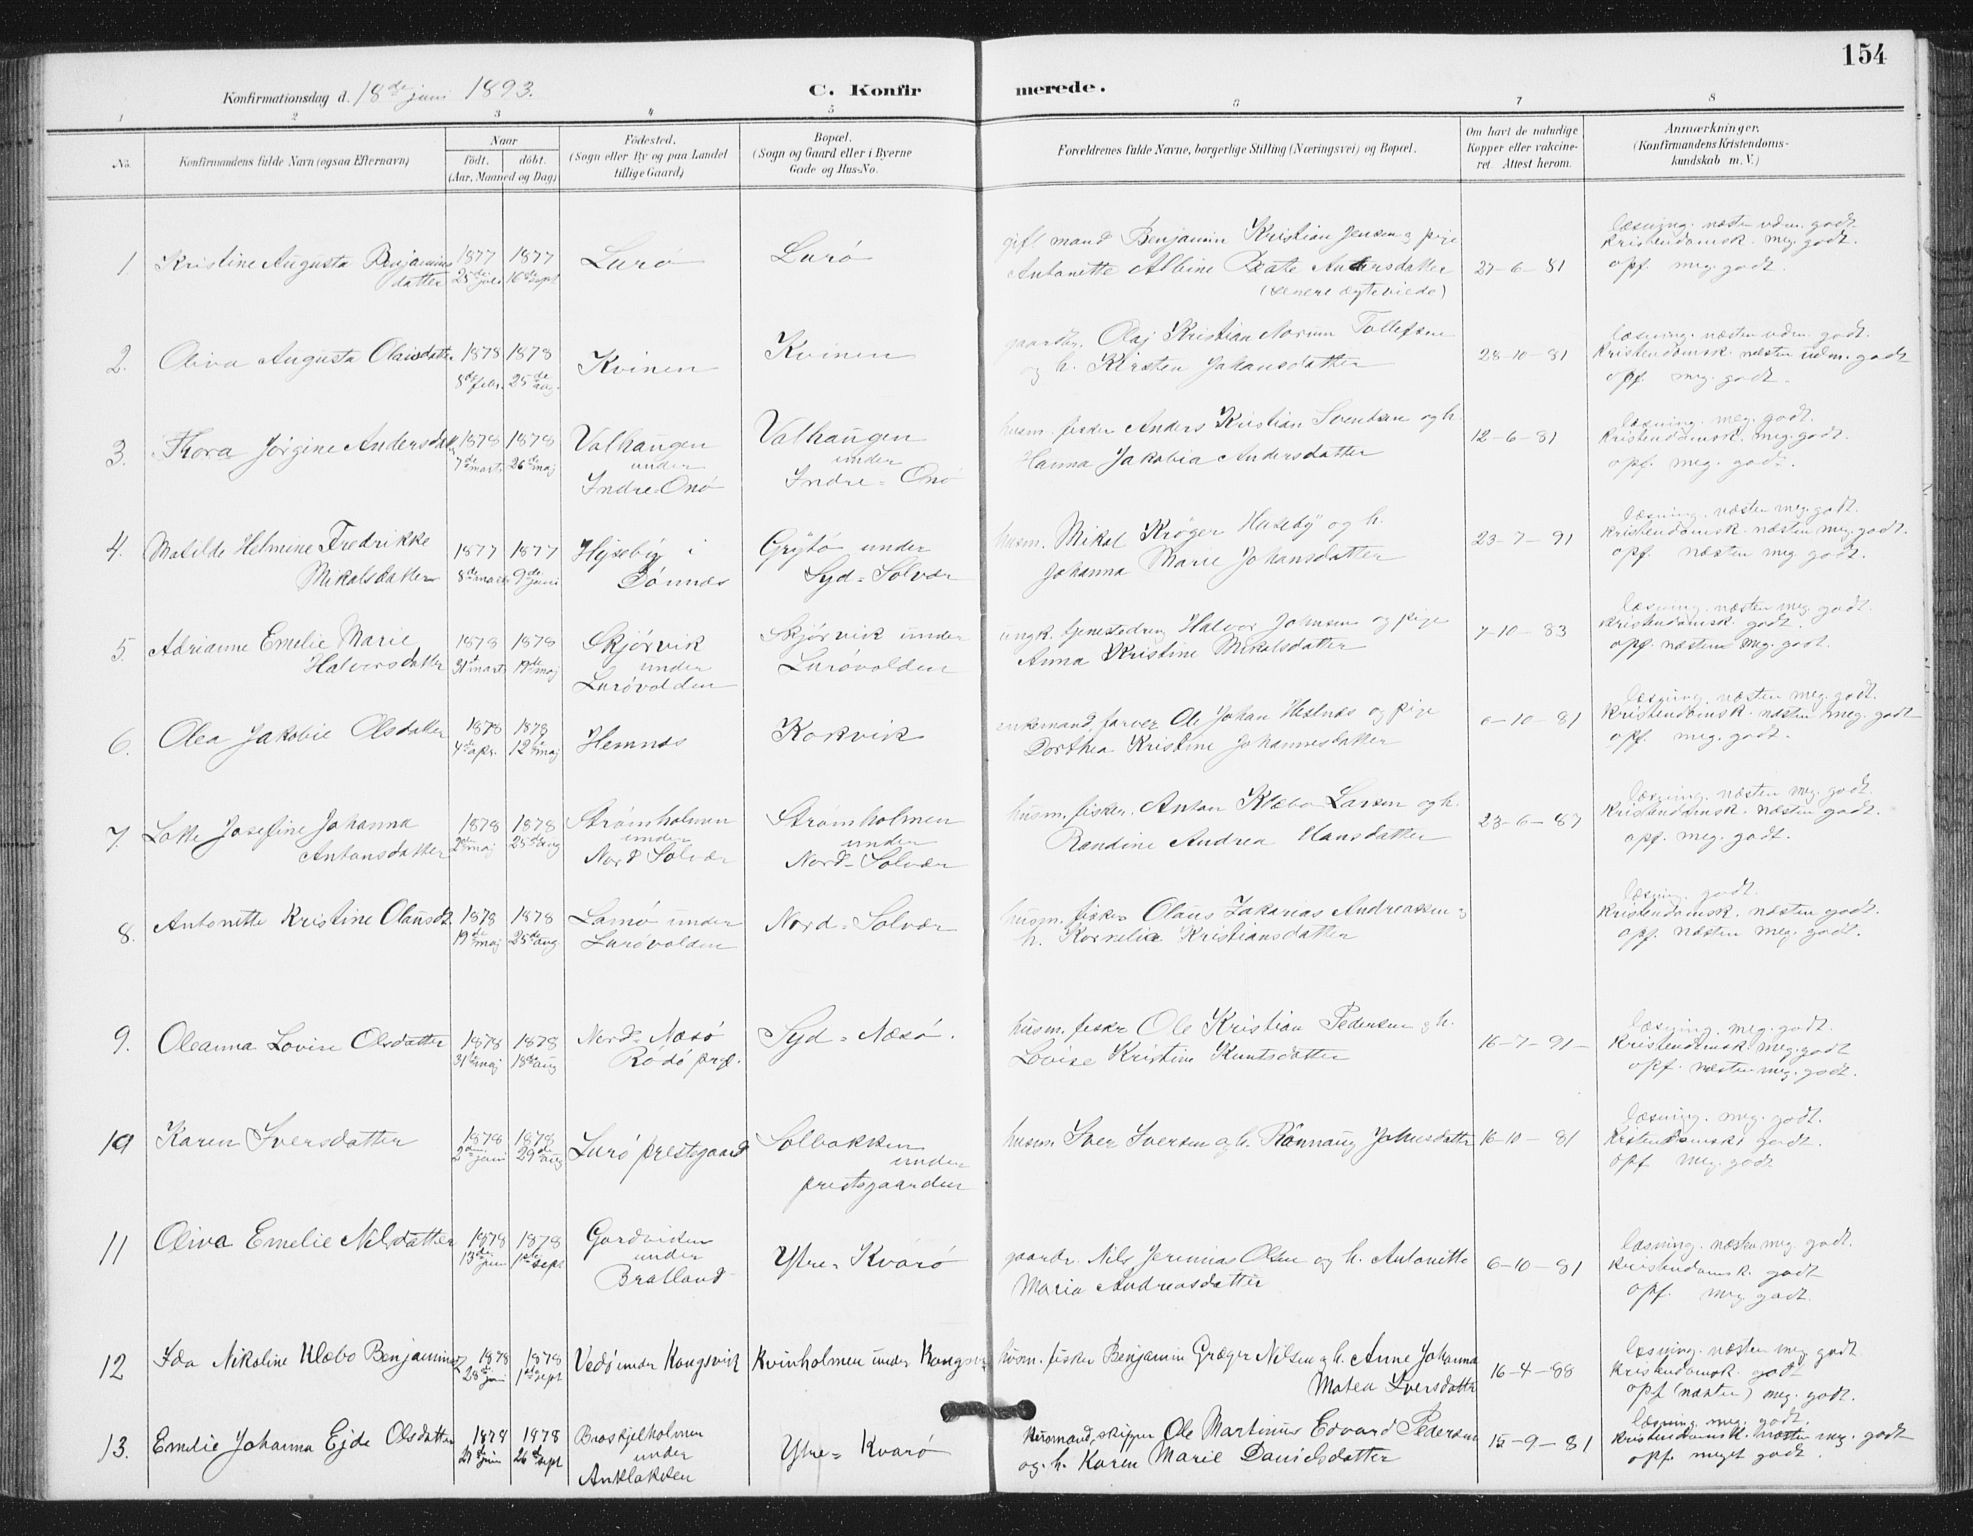 154
Konfirmationsdag d. 18de juni 1893.
C. Konfirmerede.
1 2 3 4 5 6 7 8
No.
Konfirmandens fulde Navn (ogsaa Efternavn)
Naar
født. døbt.
(Aar, Maaned og Dag)
Fødested.
(Sogn eller By og paa Landet
tillige Gaard)
Bopæl.
(Sogn og Gaard eller i Byerne
Gade og Hus-No.
Forældrenes fulde Navne, borgerlige Stilling (Næringsvei) og Bopæl.
Om havt de naturlige
Kopper eller vakcine-
ret. Attest herom.
Anmærkninger.
(Konfirmandens Kristendoms-
kundskab m. V.)
1 Kristine Augusta Benjamins
datter
1877
25de juli
1877
16de sept
Lurø
Lurø
gift mand Benjamin Kristian Jensen og pige
Antonette Albine Beate Andersdatter
(senere ægteviede)
27-6-81
læsning. næsten udm. godt
kristendomsk. meg. godt.
opf. meg. godt.
2. Oliva Augusta Olaisdatter
1878
8de febr.
1878
25de aug.
Kvinen
Kvinen
gaardbr. Olaj Kristian Norum Tollefsen
og h. Kirsten Johansdatter
28-10-81
læsning. næsten udm. godt.
kristendomsk. næsten udm. godt
opf. meg. godt.
3. Thora Jørgine Andersdatter
1878
7de marts
1878
26de maj
Valhaugen
under
Indre Onø
Valhaugen
under
Indre-Onø
husm. fisker Anders Kristian Svendsen og h.
Hanna Jakobia Andersdatter
12-6-81
læsning. meg. godt.
kristendomsk. meg. godt.
opf. meg. godt.
4. Matilde Helmine Fredrikke
Mikalsdatter
1877
8de marts
1877
9de juni
Hysebÿ i
Dønnes
Grÿtø under
Syd-Solvær
husm. Mikal Krøger Husebÿ og h.
Johanna Marie Johansdatter
23-7-91
læsning. næsten meg. godt.
kristendomsk. næsten meg. godt.
opf. næsten meg godt.
5. Adrianne Emelie Marie
Halvorsdatter
1878
31te marts
1878
19de maj
Skjørvik
under
Lurøvolden
Skjørvik under
Lurøvolden
ungk. tjenestedreng Halvor Johnsen og pige
Anna Kristine Mikalsdatter
7-10-83
læsning. næsten meg. godt.
kristendomsk. godt.
opf. næsten meg. godt.
6. Olea Jakobie Olsdatter
1878
4de apr.
1878
12te maj
Hemnæs
Kokvik
enkemand, farver Ole Johan Hestnæs og pige
Dorthea Kristine Johannesdatter
6-10-81
læsning. næsten meg. godt.
kristendomsk. næsten meg. godt
opf. meg. godt.
7. Lotte Josefine Johanna
Antonsdatter
1878
2den maj
1878
25de aug
Strømholmen
under
Nord Solvær
Strømholmen
under
Nord-Solvær
husm. fisker. Anton Klæbo Larsen og h.
Randine Andrea Hansdatter
læsning. næsten meg. godt
kristendomsk. næsten godt.
opf. meg. godt.
8. Antonette Kristine Olausdt.
1878
19de maj
1878
25de aug
Lamø under
Lurøvolden
Nord-Solvær
husm. fisker Olaus Zakarias Andreassen og
h. Kornelia Kristiansdatter
læsning. godt.
kristendomsk. næsten godt.
opf. næsten meg. godt.
9. Oleanna Lovise Olsdatter
1878
31te maj
1878
18de aug
Nord-Næsø
Rødø prgj.
Syd-Næsø.
husm. fisker Ole Kristian Pedersen og h.
Lovise Kristine Kuntsdatter
16-7-91-
læsning. meg. godt.
kristendomsk. meg. godt
opf. næsten meg. godt.
10 Karen Iversdatter
1878
2den juni
1878
29de aug
Lurø prestegaard
Solbakken
under
prestegaarden
husm Iver Iversen og h. Rønnaug Johnsdatter
16-10-81
læsning. meg. godt.
godt.
opf. meg. godt
11 Oliva Emelie Nilsdatter
1878
13de juni
1878
1ste sept
Gordviken
under
Bratland
Ytre-Kvarø
gaardbr. Nils Jeremias Olsen og h. Antonette
Maria Andreasdatter
6-10-81
læsning. næsten meg. godt.
kristendomsk. godt
opf. meg godt.
12 Ida Nikoline Klæbo Benjamins
1878
28de juni
1878
1ste sept
Vedø under Kongsvik
Kvinholmen under Kongsv.
husm. fisker Benjamin Græger Nilsen og h. Anne Johanna
Matea Iversdatter
16-4-88
læsning. næsten meg godt
kristendomsk. godt
opf (næsten) meg. godt.
13. Emelie Johanna Ejde Olsdatter
1878
juni
1878
26de sept
under
Anklakken
Ytre-Kvarø
husmand, skipper Ole Martinus Edvard Pedersen
og h. Karen Marie Danielsdatter
15-9-81
læsning. meg. godt.
kristendomsk. næsten meg. godt
opf. meget godt.